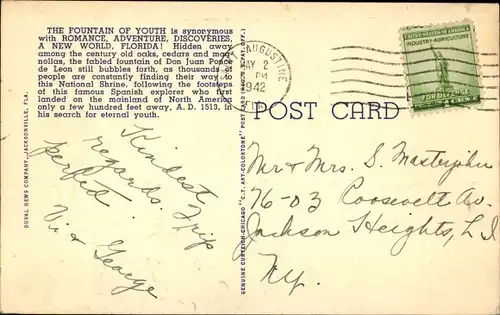 THE FOUNTAIN OF YOUTH is synonymous
with ROMANCE, ADVENTURE, DISCOVERIES,
A NEW WORLD, FLORIDA! Hidden away
among the century old oaks, cedars and mag-
nolias, the fabled fountain of Don Juan Ponce
de Leon still bubbles forth, as thousands of
people are constantly finding their way to
this National Shrine, following the footsteps
of this famous Spanish explorer who first
landed on the mainland of North America
only a few hundred feet away, A. D. 1513, in
his search for eternal youth.
DUVAL NEWS COMPANY, JACKSONVILLE, FLA.
Kindest
regards.
Perfect Trip
Vi & George
GENUINE CURTEICH-CHICAGO "C.T. ART-COLORTONE" POST CARD (REG. U.S. PAT. OFF.)
AUGUSTINE
MAY 2
PM
1942
FLA.
UNITED STATES OF AMERICA
INDUSTRY-AGRICULTURE
FOR DEFENSE
POST CARD
Mr & Mrs. S. Masterjohn
76-03 Roosevelt Av.
Jackson Heights, L.I
N.Y.